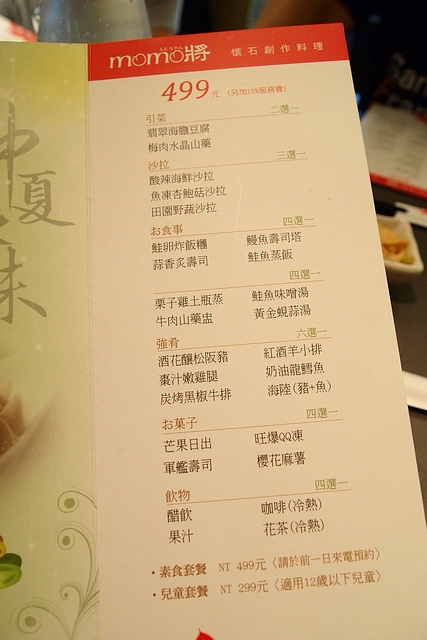 中
夏
味
momo將
懷石創作料理
499元 (另加10%服務費)
引菜 二選一
翡翠海膽豆腐
梅肉水晶山藥
沙拉 三選一
酸辣海鮮沙拉
魚凍杏鮑菇沙拉
田園野蔬沙拉
お食事 四選一
鮭卵炸飯糰 鰻魚壽司塔
蒜香炙壽司 鮭魚蒸飯
四選一
栗子雞土瓶蒸 鮭魚味噌湯
牛肉山藥盅 黃金蜆蒜湯
強肴 六選一
酒花釀松阪豬 紅酒羊小排
棗汁嫩雞腿 奶油龍鱈魚
炭烤黑椒牛排 海陸(豬+魚)
お菓子 四選一
芒果日出 旺爆QQ凍
軍艦壽司 櫻花麻薯
飲物 四選一
醋飲 咖啡(冷熱)
果汁 花茶(冷熱)
・素食套餐 NT 499元〈請於前一日來電預約〉
・兒童套餐 NT 299元〈適用12歲以下兒童〉